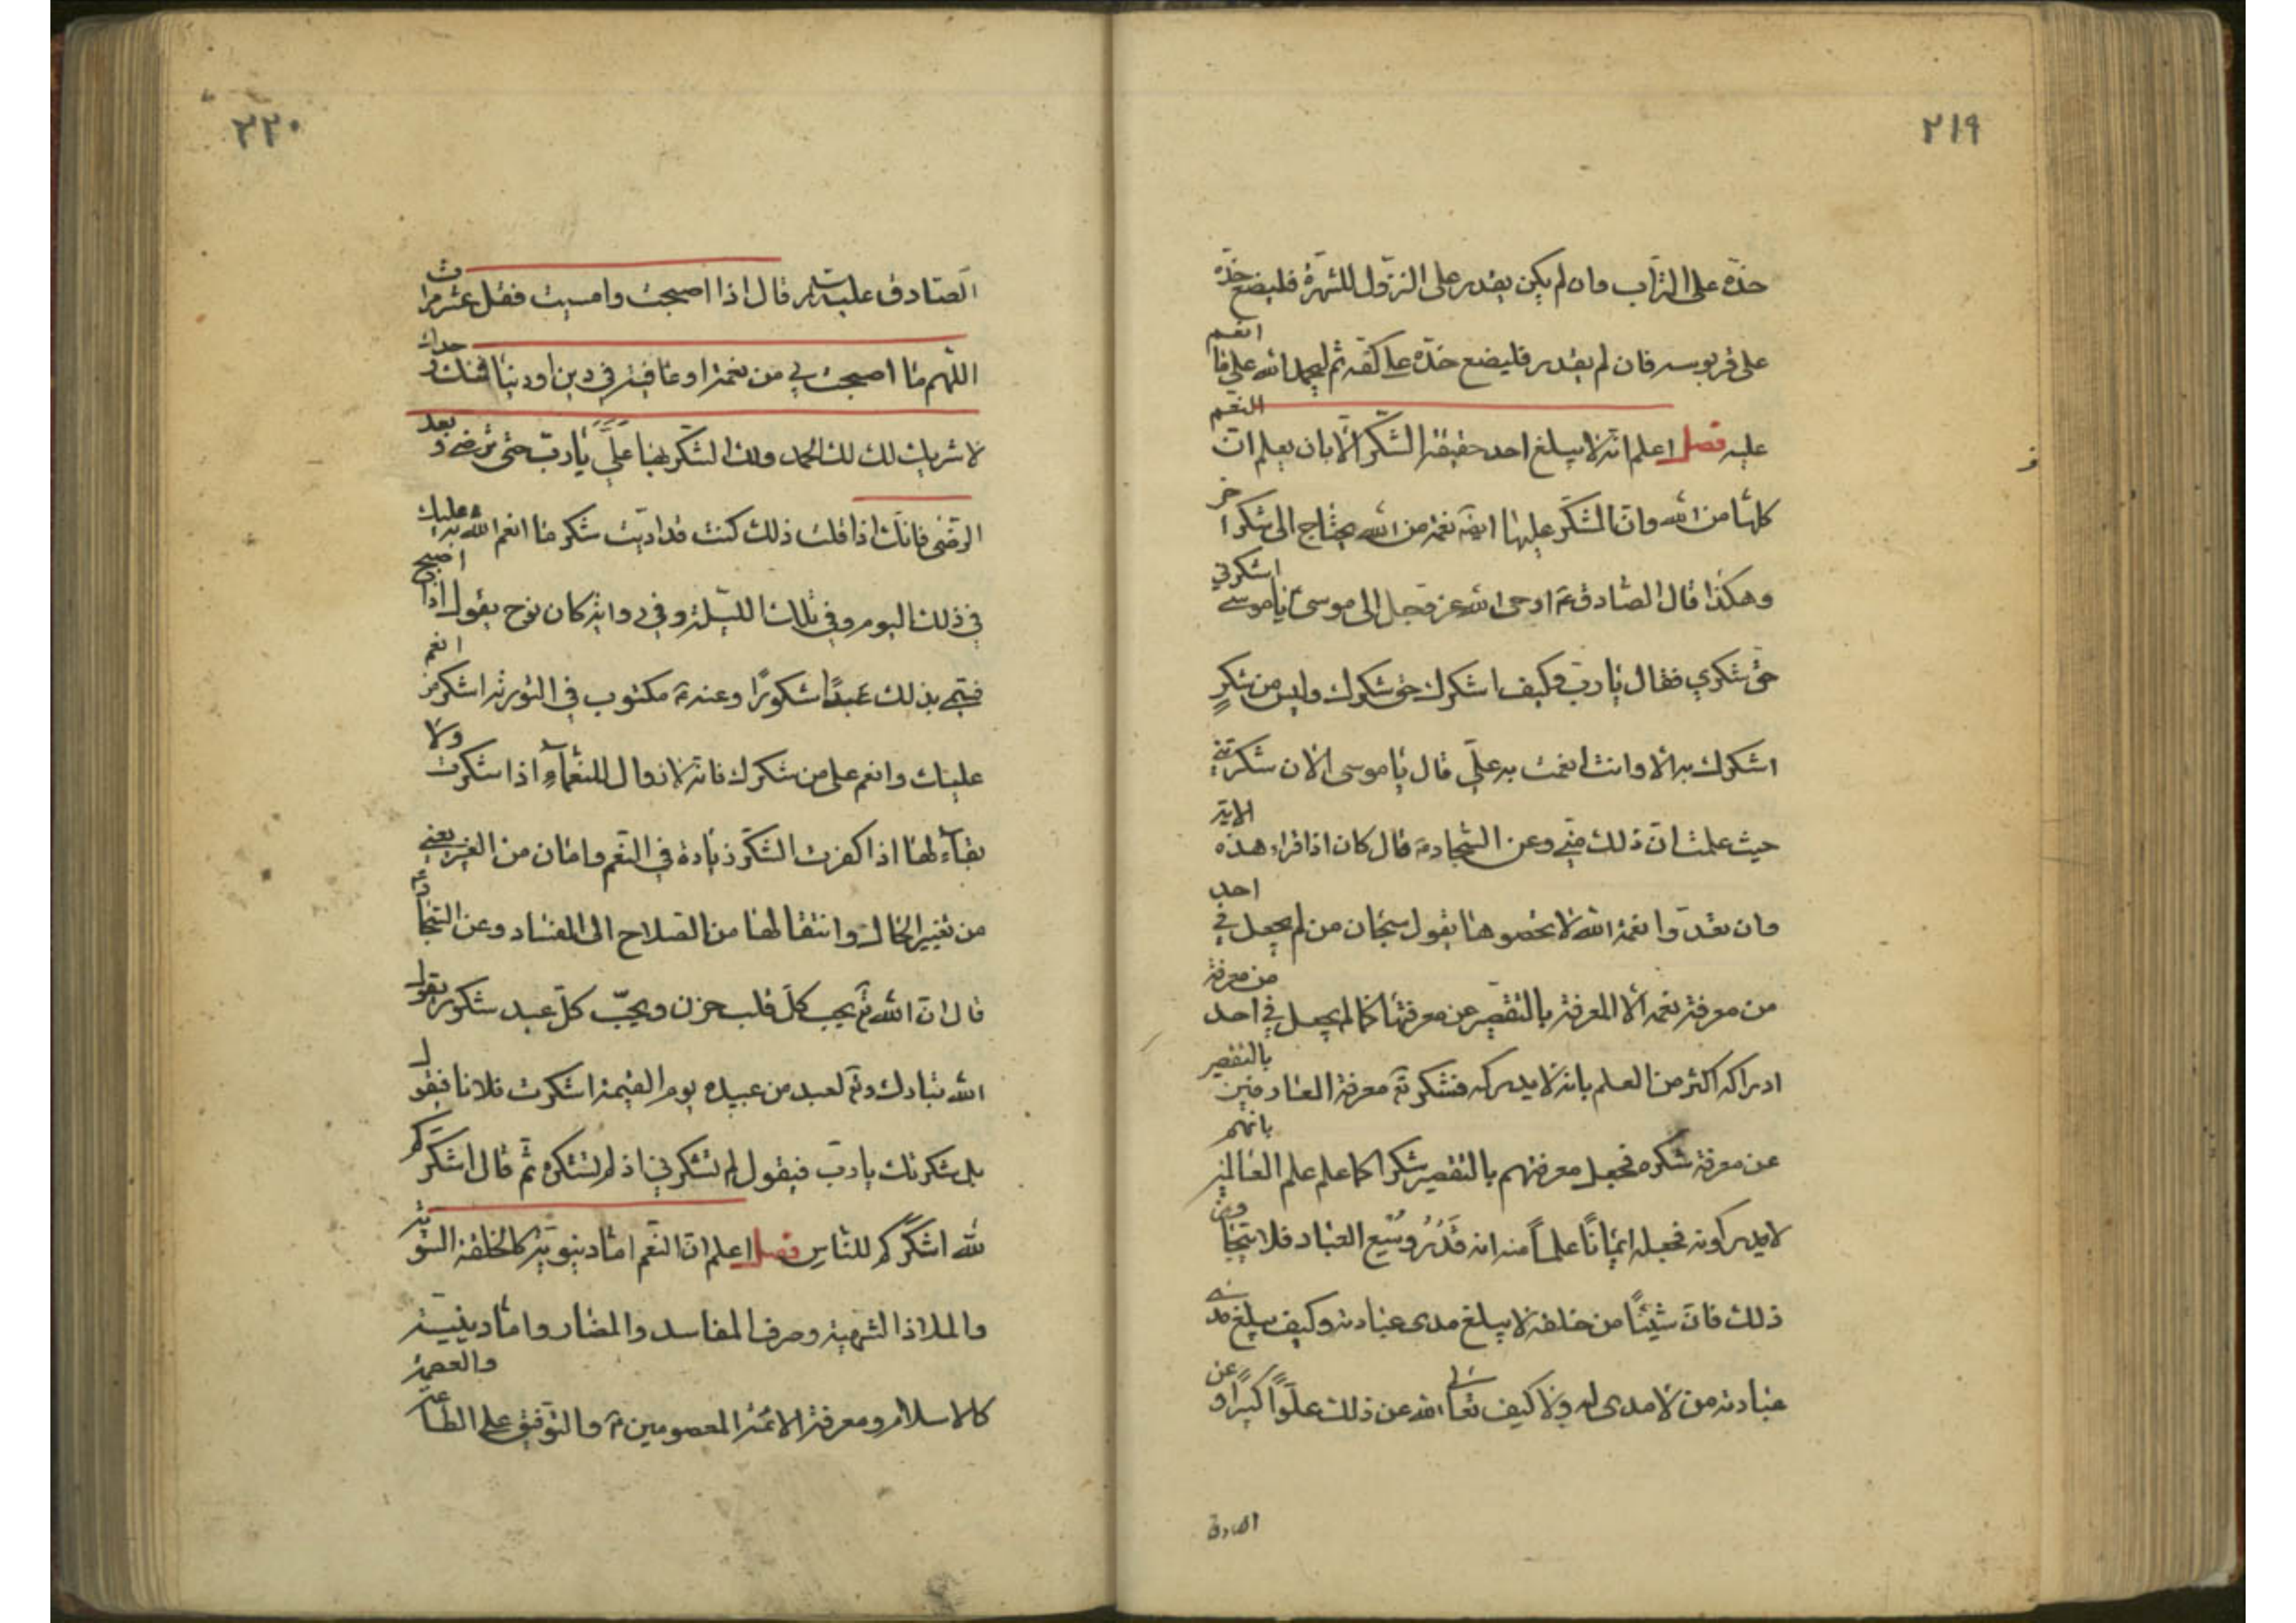 ٢١٩
خدّه على التراب وان لم يكن يقدر على النزول للشهرة فليضع خدّه
على قربوسه فان لم يقدر فليضع خدّه على كفّه ثم ليحمد الله على ما انعم
عليه فصل اعلم انه لا يبلغ احد حقيقة الشكر الّا بان يعلم انّ النعم
كلها من الله وانّ الشكر عليها ايضا نعمة من الله يحتاج الى شكر آخر
وهكذا قال الصادق ع اوحى الله عز وجل الى موسى ع يا موسى اشكرني
حق شكري فقال يا ربّ وكيف اشكرك حق شكرك وليس من شكرٍ
اشكرك به الا وانت انعمت به عليّ قال يا موسى الان شكرتني
حيث علمت انّ ذلك منّي وعن السجاد ع قال كان اذا قراء هذه الاية
وان تعدّوا نعمة الله لا تحصوها يقول سبحان من لم يجعل في احد
من معرفة نعمه الّا المعرفة بالتقصير عن معرفتها كما لم يجعل في احد من معرفة
ادراكه اكثر من العلم بانه لا يدركه فشكر تع معرفة العارفين بالتقصير
عن معرفة شكره فجعل معرفتهم بالتقصير شكرا كما علم علم العالمين بانهم
لا يدركونه فجعله ايمانًا علماً منه انه قَدْرُ وُسْعِ العباد فلا يتجاوز
ذلك فانّ شيئًا من خلقه لا يبلغ مدى عبادته وكيف يبلغ مدى
عبادته من لا مدى له ولا كيف تعالى الله عن ذلك علوّاً كبيراً و عن
الصادق
٢٢٠
الصّادق عليه السلام قال اذا اصبحت وامسيت فقل عشر مرات
اللّهم ما اصبحت بي من نعمة او عافية في دين او دنيا فمنك وحدك
لا شريك لك لك الحمد ولك الشّكر بها عَلَيَّ يا ربّ حتى ترضى وبعد
الرّضى فانّك اذا قلت ذلك كنت قد ادّيت شكر ما انعم الله به عليك
في ذلك اليوم وفي تلك الليلة وفي رواية كان نوح يقول اذا اصبح
فسمّي بذلك عَبدًا شكورًا وعنه ع مكتوب في التورية اشكر من انعم
عليك وانعم على من شكرك فانه لا زوال للنعماء اذا شكرت ولا
بقاء لها اذا كفرت الشكر زيادة في النّعم وامان من الغير يعني
من تغيير الحال وانتقالها من الصلاح الى الفساد وعن السّجاد ع
قال انّ الله تع يحب كلّ قلب حزن ويحبّ كلّ عبد شكور يقول
الله تبارك وتع لعبد من عبيده يوم القيمة اشكرت فلانا فيقول
بل شكرتك يا ربّ فيقول لم تشكرني اذ لم تشكره ثم قال اشكركم
لله اشكركم للنّاسِ فصل اعلم انّ النّعم امّا دنيويّة كالخلقة السّوية
والملاذ الشّهية وصرف المفاسد والمضار وامّا دينيّة
كالاسلام ومعرفة الائمة المعصومين ع والتوفيق على الطاعة والعصمة